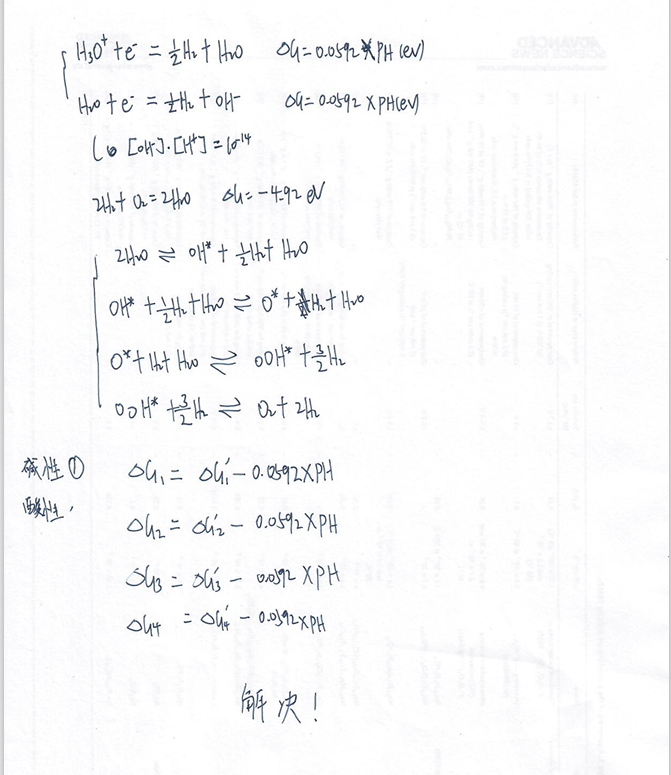 H₃O⁺ + e⁻ = ½H₂ + H₂O ΔG = 0.0592 × PH (eV)
H₂O + e⁻ = ½H₂ + OH⁻ ΔG = 0.0592 × PH (eV)
[OH⁻]·[H⁺] = 10⁻¹⁴
2H₂ + O₂ = 2H₂O ΔG = -4.92 eV
2H₂O ⇌ OH* + ½H₂ + H₂O
OH* + ½H₂ + H₂O ⇌ O* + H₂ + H₂O
O* + H₂ + H₂O ⇌ OOH* + 3/2 H₂
OOH* + 3/2 H₂ ⇌ O₂ + 2H₂
碱性① ΔG₁ = ΔG₁′ - 0.0592 × PH
酸性
ΔG₂ = ΔG₂′ - 0.0592 × PH
ΔG₃ = ΔG₃′ - 0.0592 × PH
ΔG₄ = ΔG₄′ - 0.0592 × PH
解决!